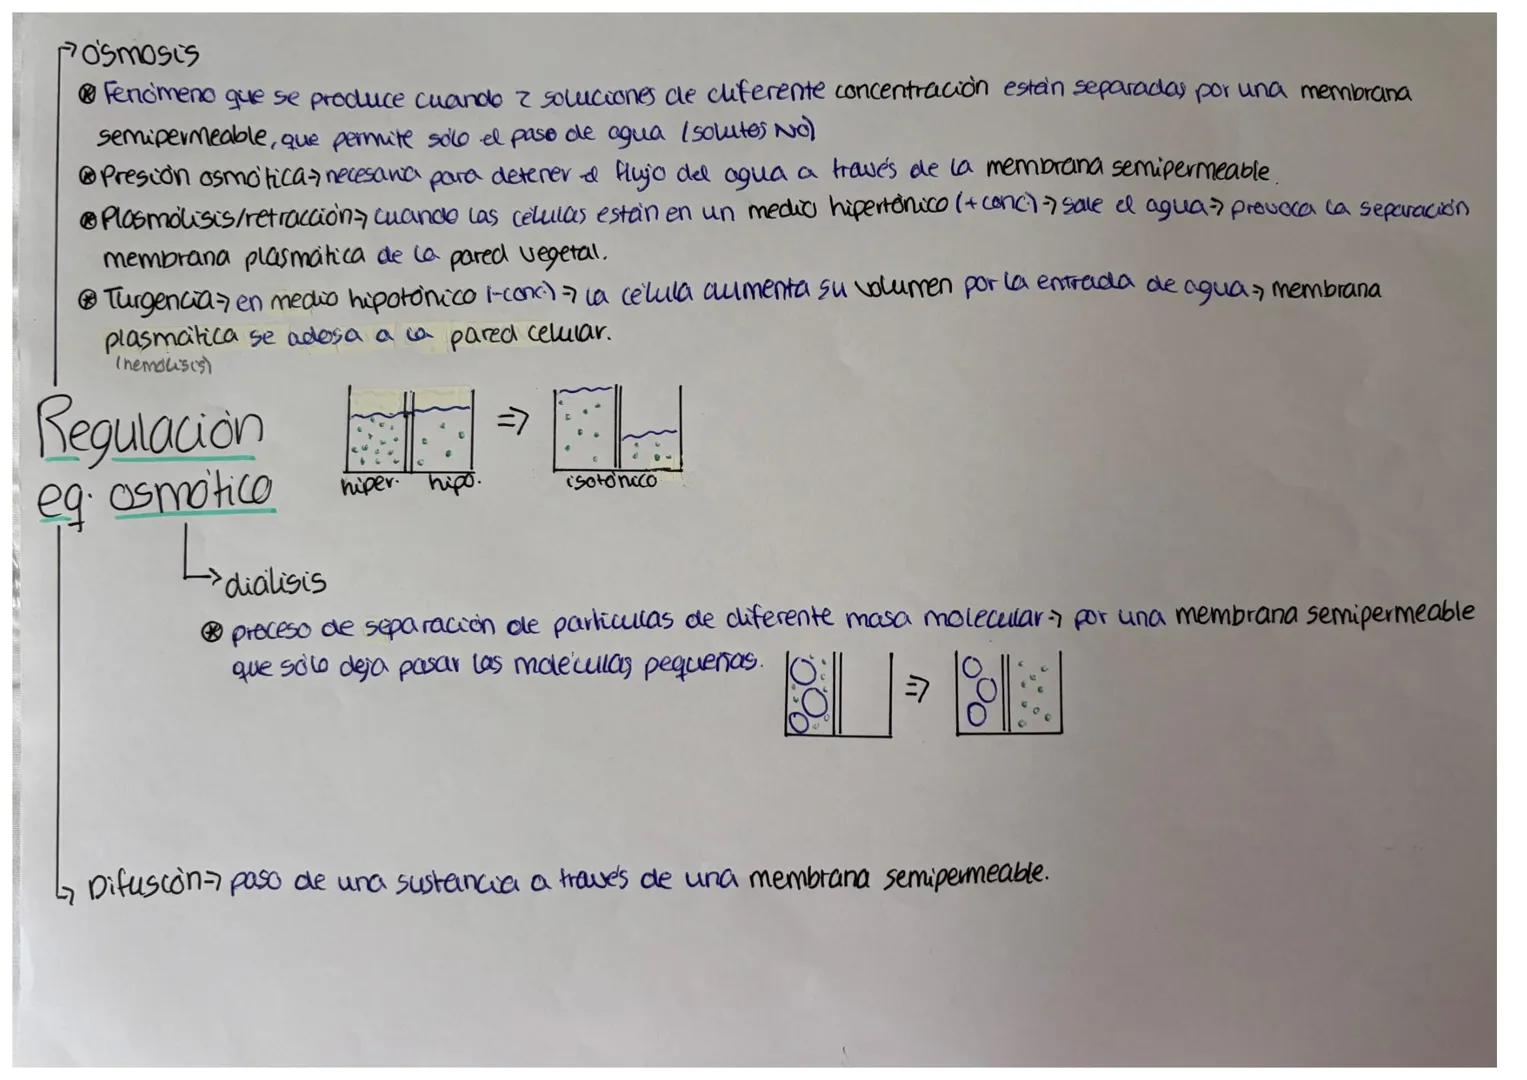 ósmosis
Fenómeno que se produce cuando 2 soluciones de diferente concentración están separadas por una membrana
semipermeable, que permite sólo el paso de agua (solutos NO)
Presión osmótica → necesaria para detener el flujo del agua a través de la membrana semipermeable.
Plasmólisis/retracción → cuando las células están en un medio hipertónico (+ conc.) → sale el agua → provoca la separación
membrana plasmática de la pared vegetal.
Turgencia → en medio hipotónico (-conc.) → la célula aumenta su volumen por la entrada de agua → membrana
plasmática se adosa a la pared celular.
(hemólisis)
Regulación
eq. osmótico
hiper. hipo. ⇒ isotónico
diálisis
proceso de separación de partículas de diferente masa molecular → por una membrana semipermeable
que sólo deja pasar las moléculas pequeñas.
Difusión → paso de una sustancia a través de una membrana semipermeable.